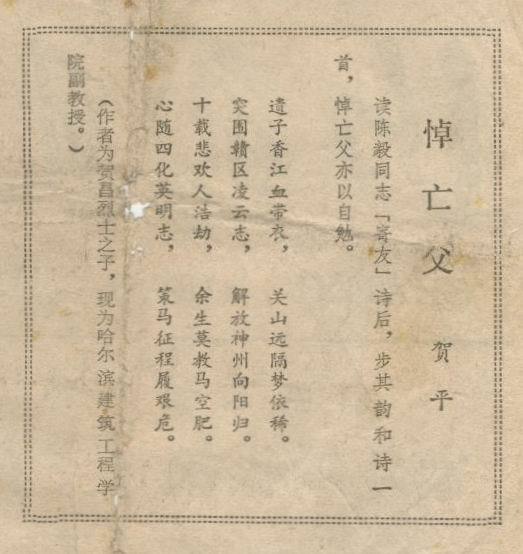 悼亡父
贺平
读陈毅同志「寄友」诗后，步其韵和诗一
首，悼亡父亦以自勉。
遗子香江血带衣，关山远隔梦依稀。
突围赣区凌云志，解放神州向阳归。
十载悲欢人浩劫，余生莫教马空肥。
心随四化英明志，策马征程履艰危。
（作者为贺昌烈士之子，现为哈尔滨建筑工程学
院副教授。）